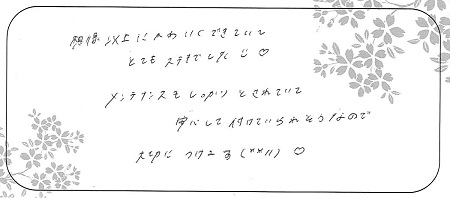 想像以上にかわいくできていて
とてもステキでした♡
メンテナンスもしっかりとされていて
安心して付けていられそうなので
大切につけまる(^^)♡